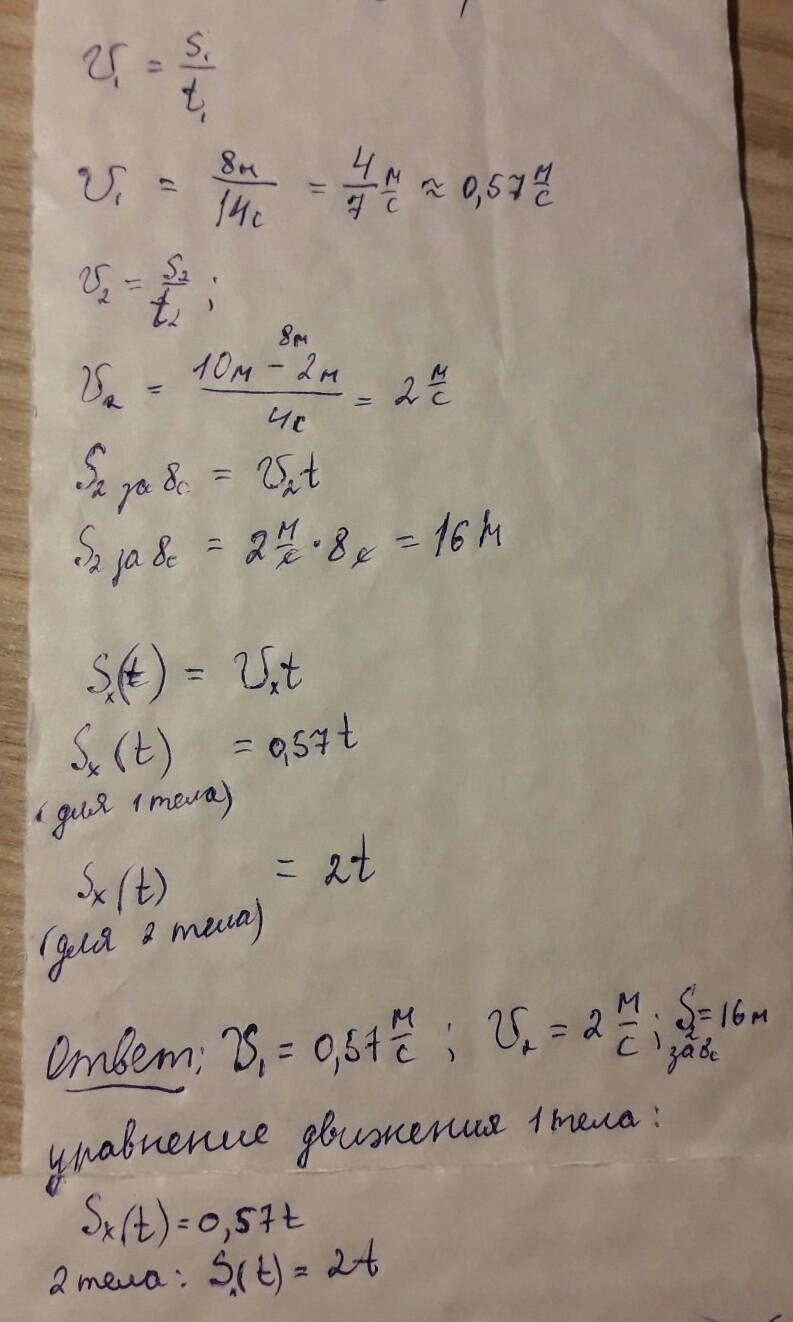 υ₁ = S₁/t₁
υ₁ = 8м/14с = 4/7 м/с ≈ 0,57 м/с
υ₂ = S₂/t₂ ;
8м
υ₂ = (10м − 2м)/4с = 2 м/с
S₂ за 8с = υ₂t
S₂ за 8с = 2 м/с · 8 с = 16 м
Sₓ(t) = υₓt
Sₓ(t) = 0,57t
(для 1 тела)
Sₓ(t) = 2t
(для 2 тела)
Ответ: υ₁ = 0,57 м/с ; υ₂ = 2 м/с ; S₂ за 8с = 16 м
уравнение движения 1 тела:
Sₓ(t) = 0,57t
2 тела: Sₓ(t) = 2t